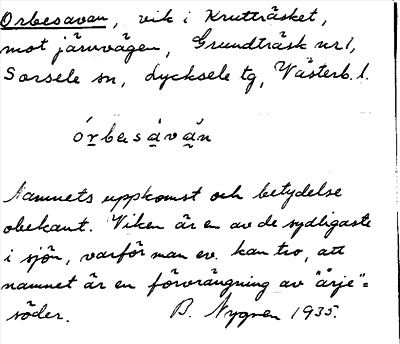 Orbesavan, vik i Krutträsket,
mot järnvägen, Grundträsk nr 1,
Sorsele sn, Lycksele tg, Västerb. l.
órbesàván
Namnets uppkomst och betydelse
obekant. Viken är en av de sydligaste
i sjön, varför man ev. kan tro, att
namnet är en förvrängning av "årje" =
söder. B. Nygren 1935.